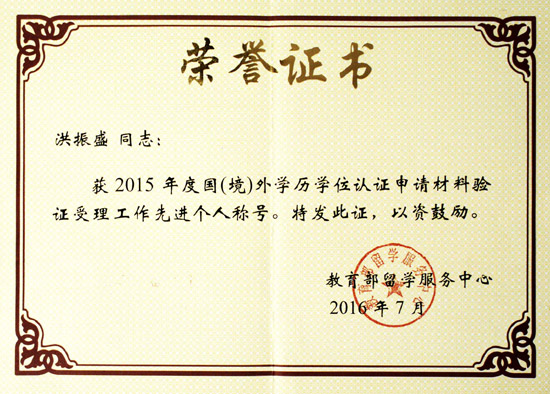 荣誉证书
洪振盛 同志：
获 2015 年度国(境)外学历学位认证申请材料验
证受理工作先进个人称号。特发此证，以资鼓励。
教育部留学服务中心
2016 年 7 月
教育部留学服务中心